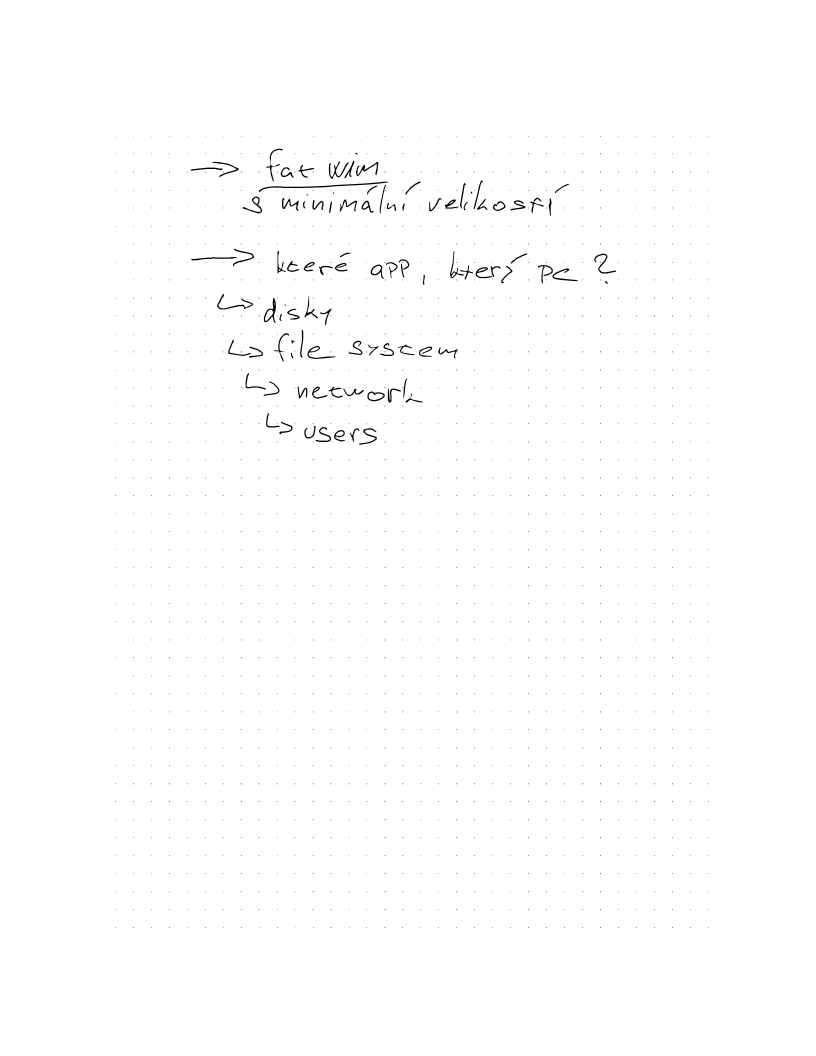 → fat wim
s minimální velikostí
→ které app, který pc?
↳ disky
↳ file system
↳ network
↳ users